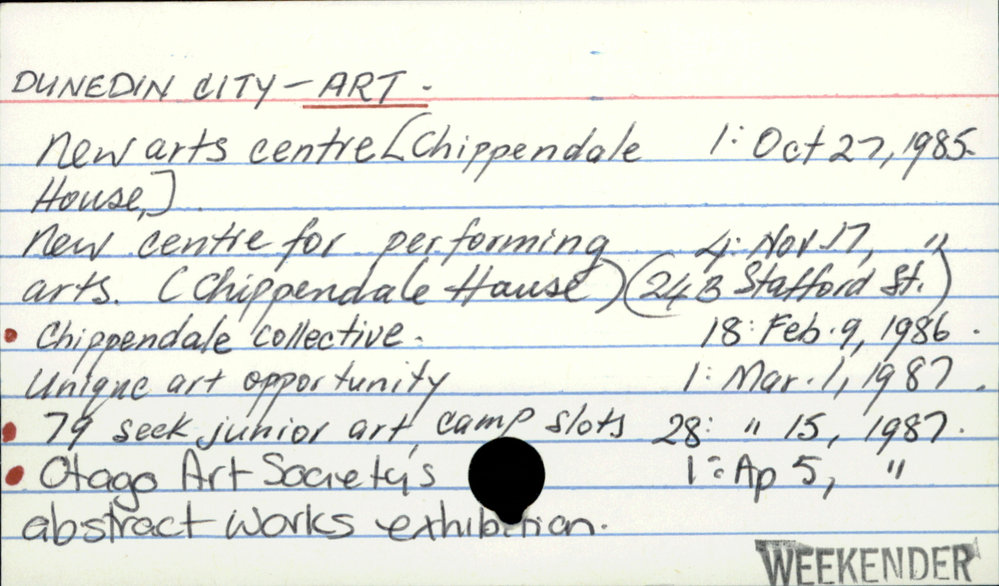 DUNEDIN CITY - ART.
New arts centre [Chippendale 1: Oct 27, 1985.
House,].
New centre for performing 4: Nov 17, "
arts. (Chippendale House) (24B Stafford St.)
• Chippendale collective. 18: Feb. 9, 1986.
Unique art opportunity 1: Mar. 1, 1987.
• 79 seek junior art camp slots 28: " 15, 1987.
• Otago Art Society's 1: Ap 5, "
abstract works exhibition.
WEEKENDER